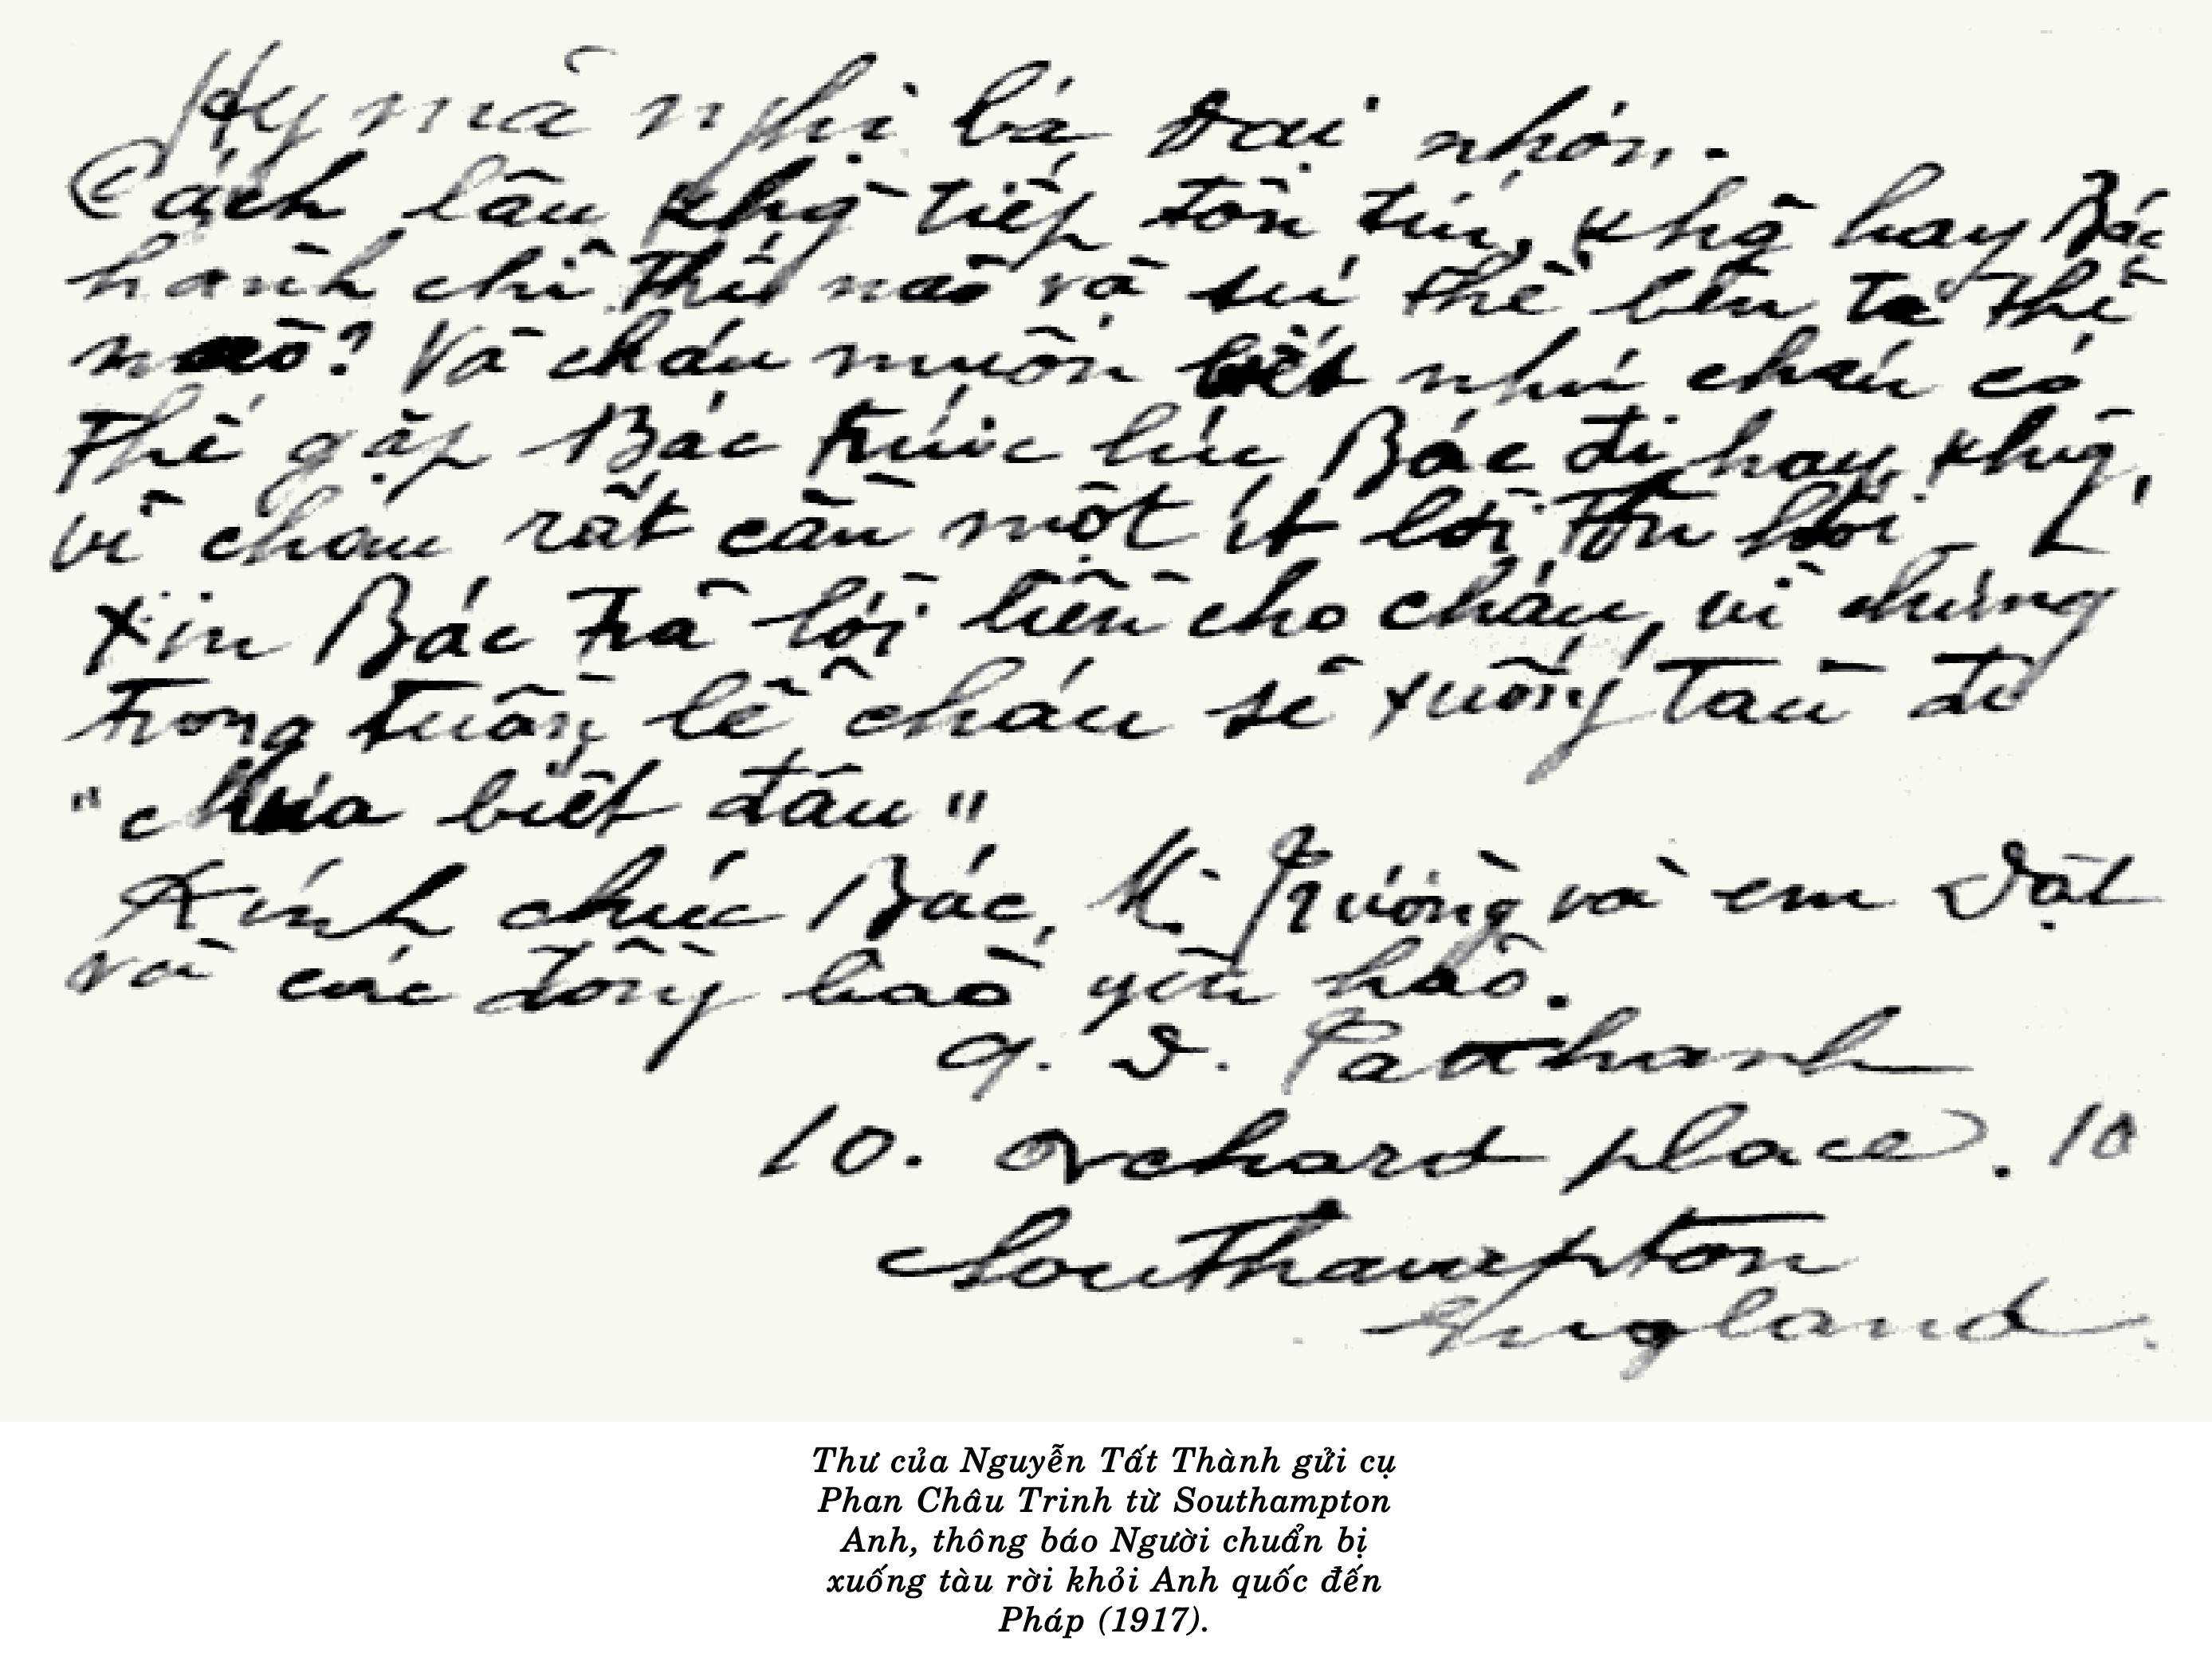 Hy mã nghị bá Đại nhơn.
Cách lâu khg tiếp tôn tín, khg hay Bác
hành chỉ thế nào và sự thế bên ta thế
nào? Và cháu muốn biết như cháu có
thể gặp Bác trước lúc Bác đi hay khg,
vì cháu rất cần một ít lời tôn hối _
Xin Bác trả lời liền cho cháu, vì chừng
trong tuần lễ cháu sẽ xuống tàu đi
"chưa biết đâu"
Kính chúc Bác, M. Trường và em Dật
và các đồng bào yên hảo.
Tatthanh
10. Orchard place. 10
Southampton
England.
Thư của Nguyễn Tất Thành gửi cụ
Phan Châu Trinh từ Southampton
Anh, thông báo Người chuẩn bị
xuống tàu rời khỏi Anh quốc đến
Pháp (1917).